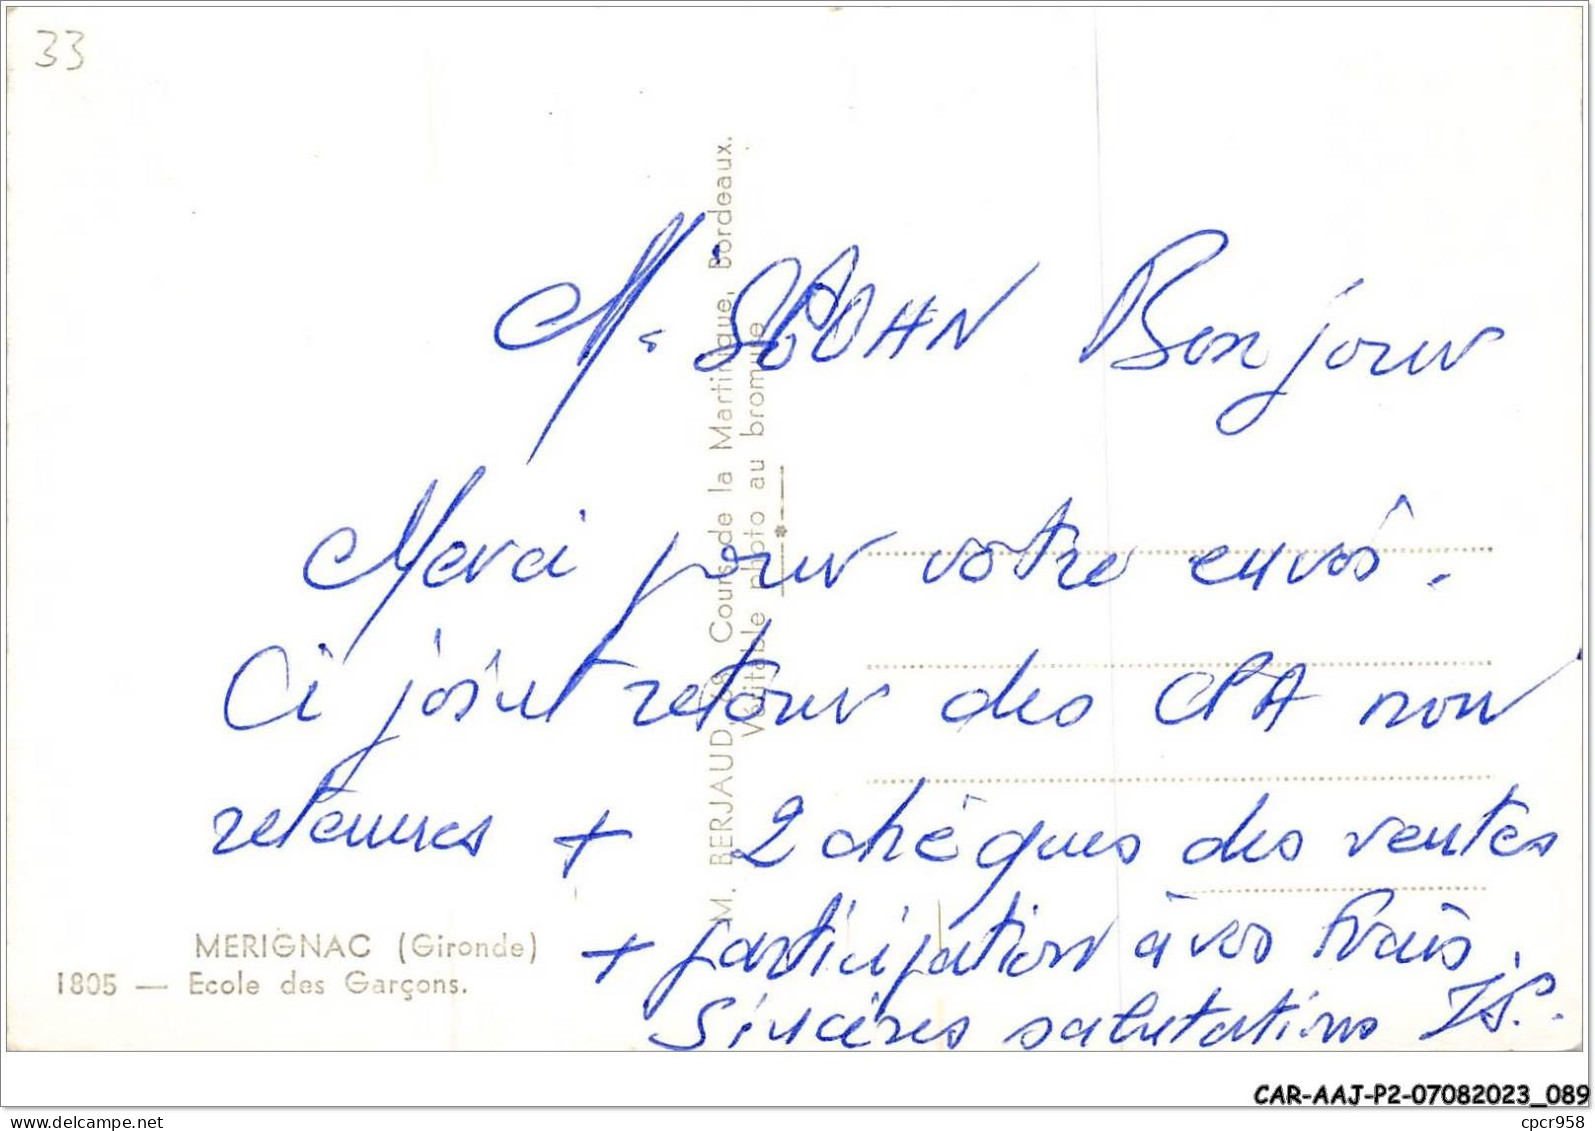 33
M. BERJAUD, 38, Cours de la Martinique, Bordeaux.
Véritable photo au bromure
Mr Bonjour
Merci pour votre envoi.
Ci joint retour des CPA non
retenues + 2 chèques des ventes
+ participation à vos frais.
Sincères salutations JP.
MERIGNAC (Gironde)
1805 — Ecole des Garçons.
CAR-AAJ-P2-07082023_089
cpcr958